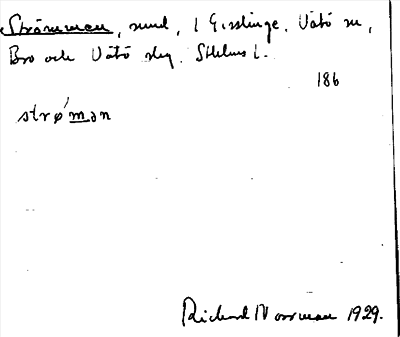 Strömmen, sund, i Gisslinge, Vätö sn,
Bro och Vätö skg, Sthlms l.
186
strǿmən
Richard Norrman 1929.